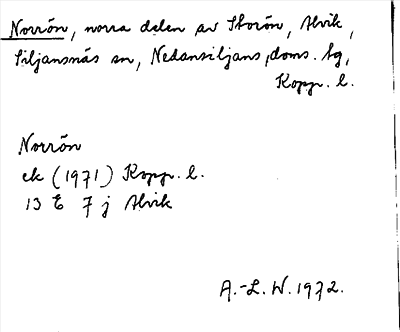 Norrön, norra delen av Storön, Alvik,
Siljansnäs sn, Nedansiljans doms. tg,
Kopp. l.
Norrön
ek (1971) Kopp. l.
13 E 7 j Alvik
A.-L. W. 1972.